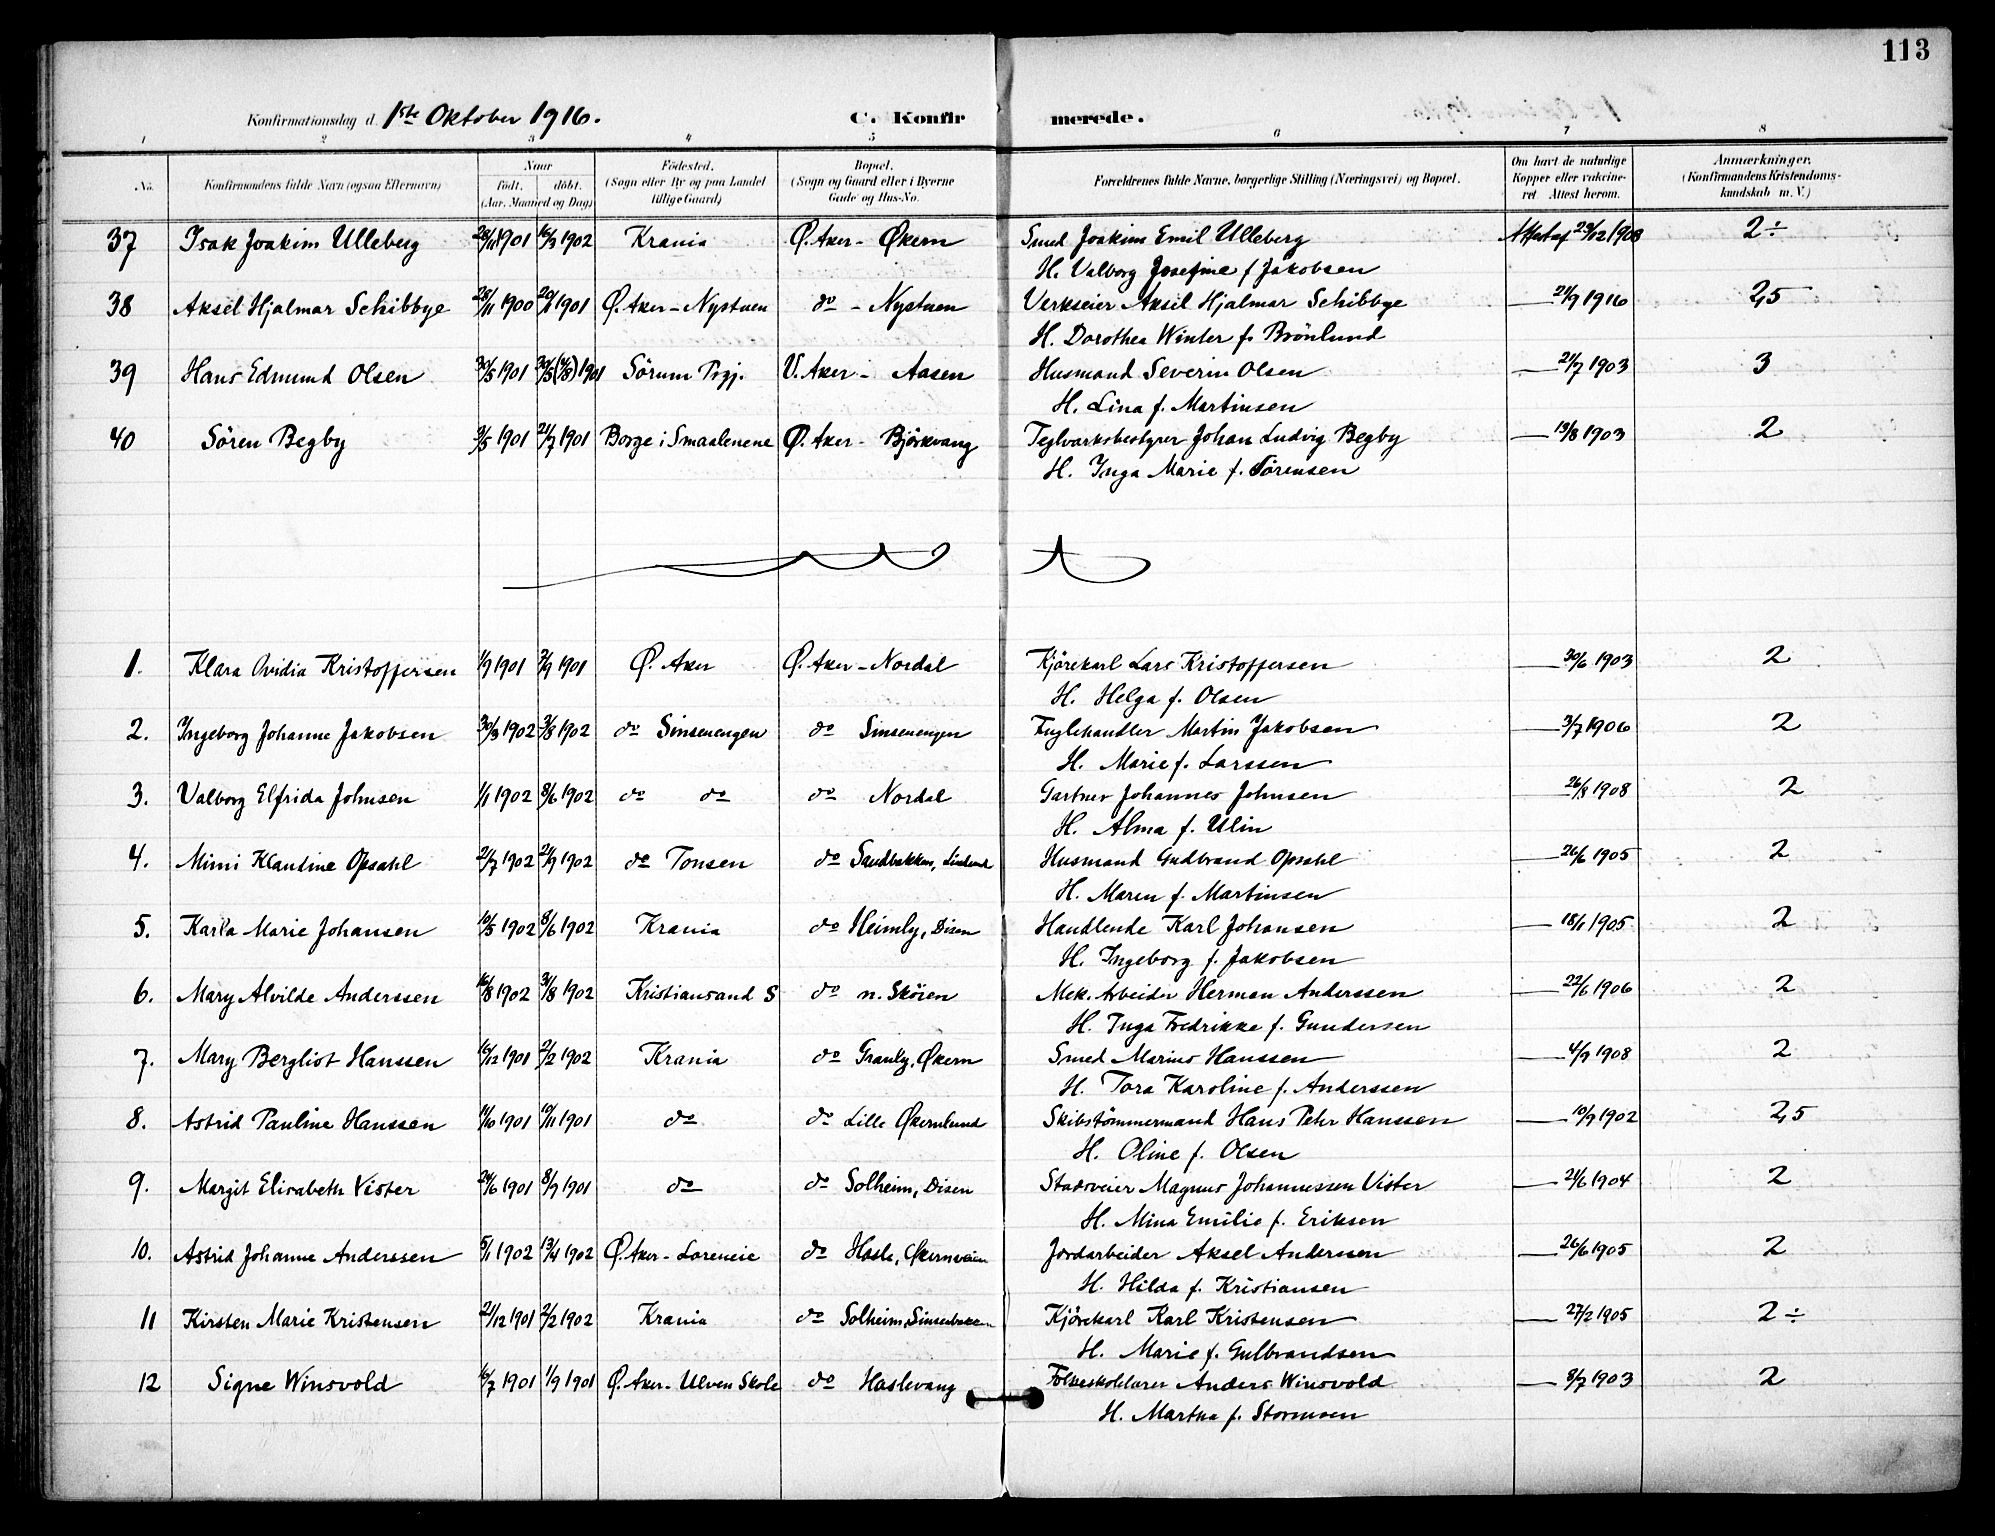 113
Konfirmationsdag d. 1ste Oktober 1916. C. Konfir merede.
1 2 3 4 5 6 7 8
No. Konfirmandens fulde Navn (ogsaa Efternavn) Naar født. døbt. (Aar, Maaned og Dag) Fødested. (Sogn eller By og paa Landet tillige Gaard) Bopæl. (Sogn og Gaard eller i Byerne Gade og Hus-No. Forældrenes fulde Navne, borgerlige Stilling (Næringsvei) og Bopæl. Om havt de naturlige Kopper eller vakcineret. Attest herom. Anmærkninger, (Konfirmandens Kristendomskundskab m. V.)
37 Isak Joakim Ulleberg 28/11 1901 16/3 1902 Krania Ø. Aker - Økern Smed Joakim Emil Ulleberg Attest af 23/12 1908 2÷
H. Valborg Josefine f. Jakobsen
38 Aksel Hjalmar Schibbye 28/11 1900 1901 Ø. Aker - Nystuen do - Nystuen Verkseier Aksil Hjalmar Schibbye — 21/9 1916 2,5
H. Dorothea Winter f. Brönlund
39 Hans Edmund Olsen 30/5 1901 1901 Sörum Prgj. V. Aker - Aasen Husmand Severin Olsen — 21/7 1903 3
H. Lina f. Martinsen
40 Sören Begby 3/5 1901 21/7 1901 Borge i Smaalenene Ø. Aker - Björkvang Teglværksbestyrer Johan Ludvig Begby — 19/8 1903 2
H. Inga Marie f. Sörensen
1. Klara Ovidia Kristoffersen 1/9 1901 1901 Ø. Aker Ø. Aker - Nordal Kjörekarl Lars Kristoffersen — 30/6 1903 2
H. Helga f. Olsen
2. Ingeborg Johanne Jakobsen 30/3 1902 3/8 1902 do Sinsenengen do Sinsenengen Fuglehandler Martin Jakobsen — 3/7 1906 2
H. Marie f. Larssen
3. Valborg Elfrida Johnsen 1/1 1902 8/6 1902 do do do Nordal Gartner Johannes Johnsen — 26/8 1908 2
H. Alma f. Ulin
4. Mimi Klaudine Opsahl 2/7 1902 21/9 1902 do Tonsen do Sandbakken, Husmand Gudbrand Opsahl — 26/6 1905 2
H. Maren f. Martinsen
5. Karla Marie Johansen 10/5 1902 8/6 1902 Krania do Heimly, Disen Handlende Karl Johansen — 18/1 1905 2
H. Ingeborg f. Jakobsen
6. Mary Alvilde Anderssen 16/8 1902 31/8 1902 Kristiansand S do n. Sköien Mek. Arbeider Herman Anderssen — 22/6 1906 2
H. Inga Fredrikke f. Gundersen
7. Mary Bergliot Hanssen 16/12 1901 2/2 1902 Krania do Granly, Økern Smed Marius Hanssen — 4/9 1908 2
H. Tora Karoline f. Anderssen
8. Astrid Pauline Hanssen 11/10 1901 10/11 1901 do do Lille Økernlund Skibstömmermand Hans Petter Hanssen — 10/9 1902 2,5
H. Oline f. Olsen
9. Margit Elisabeth Vister 24/6 1901 8/9 1901 do do Solheim, Disen Magnus Johannessen Vister — 21/6 1904 2
H. Mina Emilie f. Eriksen
10. Astrid Johanne Anderssen 5/1 1902 13/4 1902 Ø. Aker - Loreneie do Hasle, Økernveien Jordarbeider Aksel Anderssen — 26/6 1905 2
H. Hilda f. Kristiansen
11 Kirsten Marie Kristensen 21/12 1901 2/2 1902 Krania do Solheim, Sinsenbakken Kjörekarl Karl Kristensen — 27/2 1905 2÷
H. Marie f. Gulbrandsen
12 Signe Winsvold 16/7 1901 1/9 1901 Ø. Aker - Ulven Skole do Haslevang Folkeskolelærer Anders Winsvold — 8/7 1903 2
H. Martha f. Stormoen